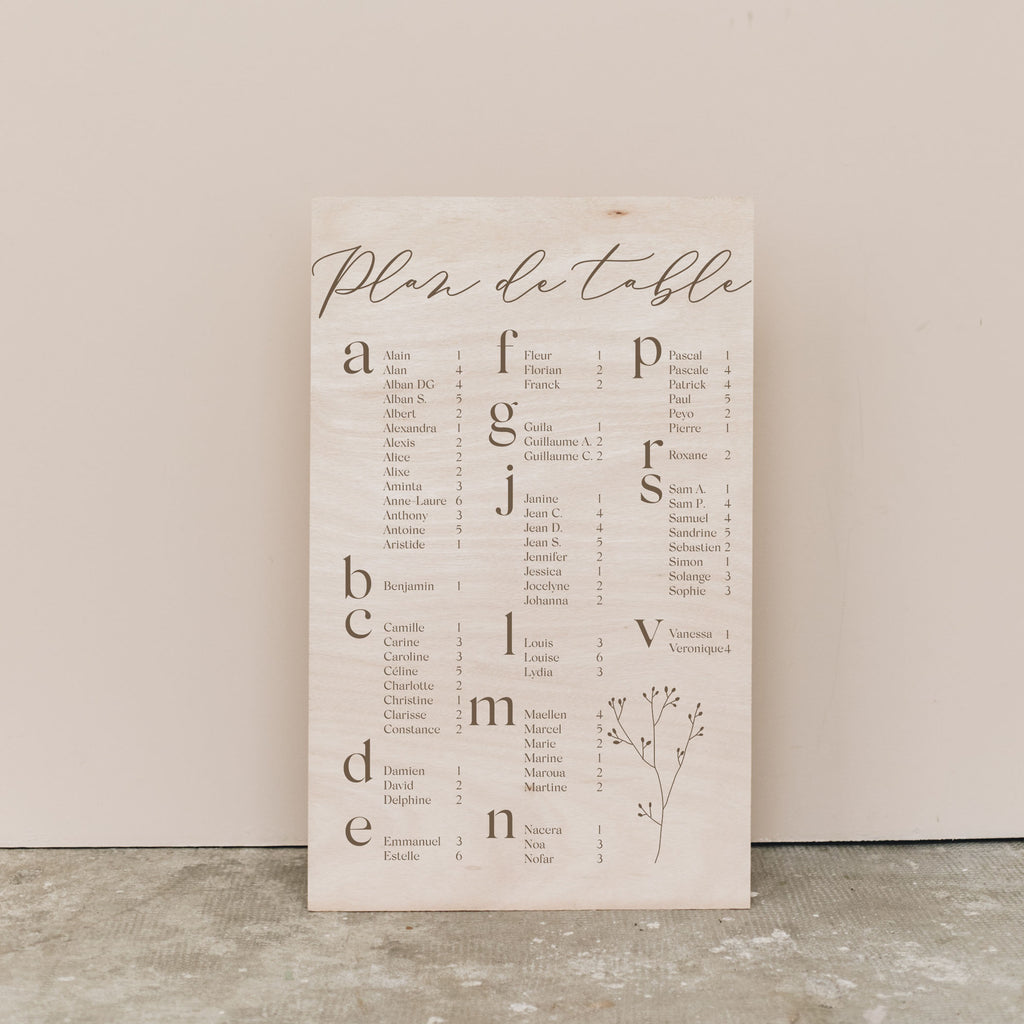 Plan de table
a
Alain 1
Alan 4
Alban DG 4
Alban S. 5
Albert 2
Alexandra 1
Alexis 2
Alice 2
Alixe 2
Aminta 3
Anne-Laure 6
Anthony 3
Antoine 5
Aristide 1
b
Benjamin 1
c
Camille 1
Carine 3
Caroline 3
Céline 5
Charlotte 2
Christine 1
Clarisse 2
Constance 2
d
Damien 1
David 2
Delphine 2
e
Emmanuel 3
Estelle 6
f
Fleur 1
Florian 2
Franck 2
g
Guila 1
Guillaume A. 2
Guillaume C. 2
j
Janine 1
Jean C. 4
Jean D. 4
Jean S. 5
Jennifer 2
Jessica 1
Jocelyne 2
Johanna 2
l
Louis 3
Louise 6
Lydia 3
m
Maellen 4
Marcel 5
Marie 2
Marine 1
Maroua 2
Martine 2
n
Nacera 1
Noa 3
Nofar 3
p
Pascal 1
Pascale 4
Patrick 4
Paul 5
Peyo 2
Pierre 1
r
Roxane 2
s
Sam A. 1
Sam P. 4
Samuel 4
Sandrine 5
Sebastien 2
Simon 1
Solange 3
Sophie 3
v
Vanessa 1
Veronique4